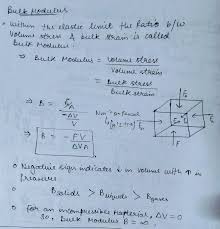 Bulk Modulus
• within the elastic limit the Ratio b/w
Volume stress & bulk strain is called
Bulk Modulus.
⇒ Bulk Modulus = Volume stress / Volume strain
= Bulk stress / Bulk strain
⇒ B = F/A / -ΔV/V
⇒ B = - FV / ΔVA
F
F
F
• Negative sign indicates ↓ in volume with ↑ in
pressure
• Bsolids > Bliquids > Bgases
• for an incompressible material, ΔV = 0
So, Bulk Modulus B = ∞.